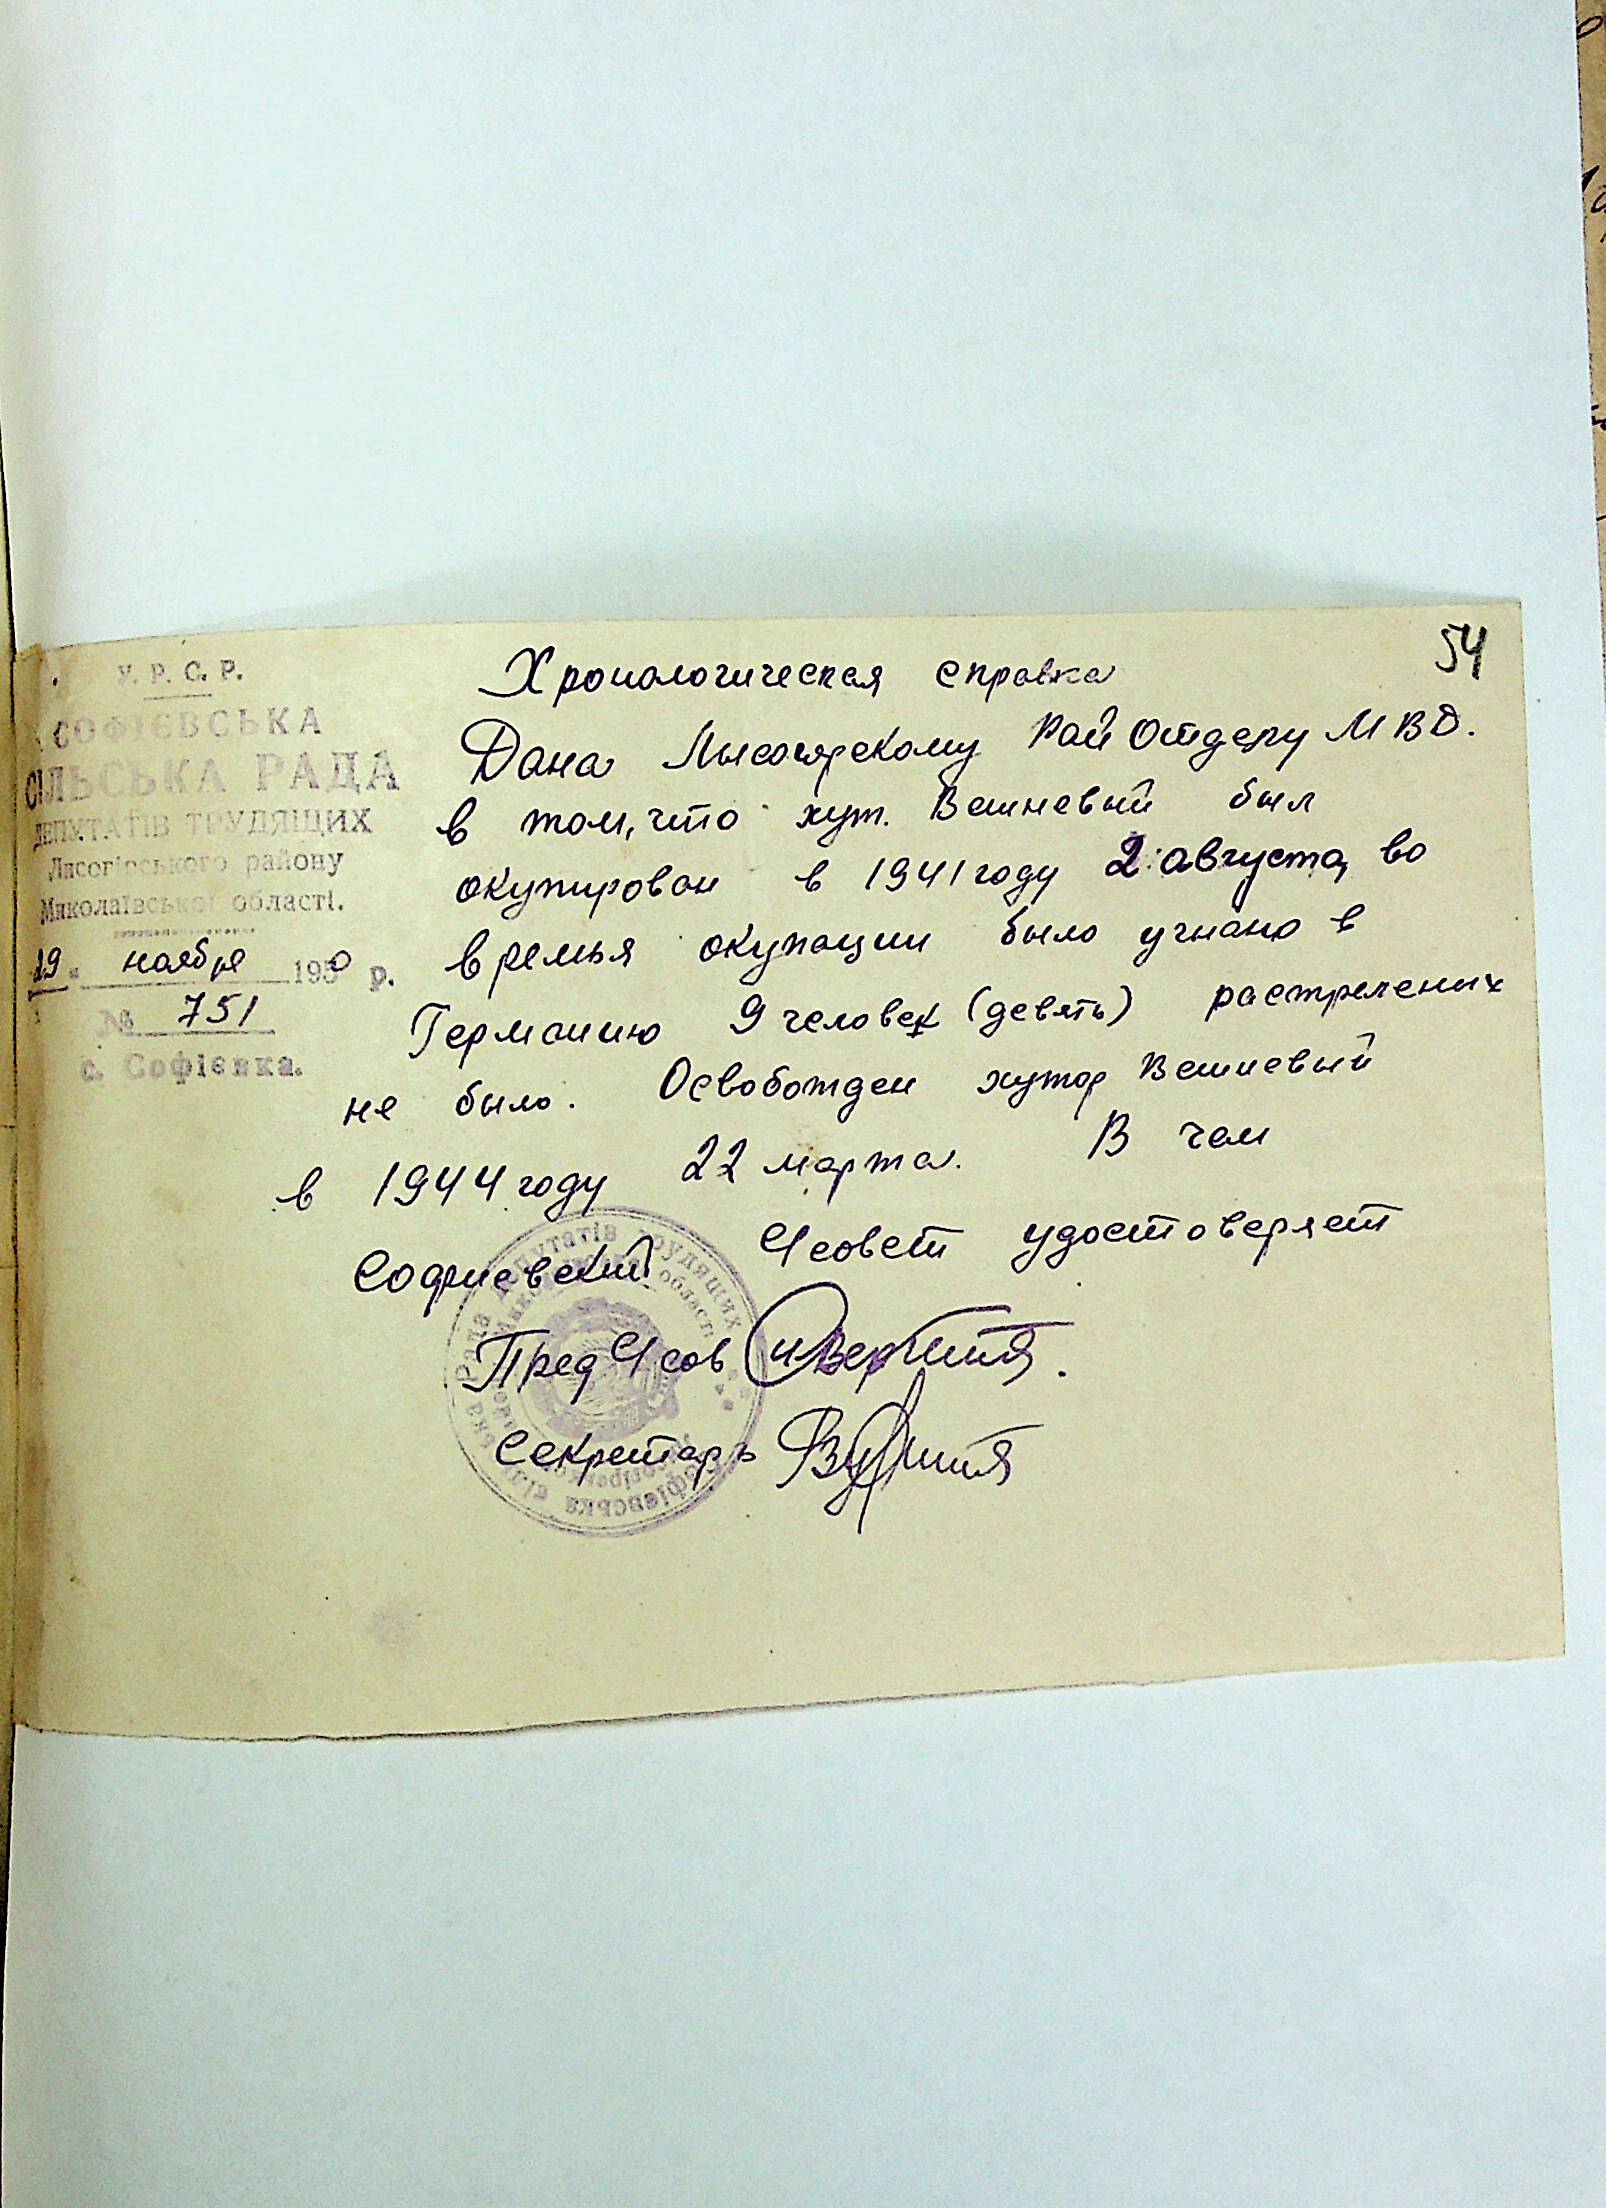 54
У. Р. С. Р.
СОФІЄВСЬКА
СІЛЬСЬКА РАДА
ДЕПУТАТІВ ТРУДЯЩИХ
Лисогірського району
Миколаївської області.
19 " ноября 1950 р.
№ 751
с. Софієвка.
Хронологическая справка
Дана Лысогорскому Рай Отделу МВД.
в том, что хут. Вешневый был
окупирован в 1941 году 2 августа, во
времья окупации было угнано в
Германию 9 человек (девять) растрелених
не было. Освобожден хутор Вешневый
в 1944 году 22 марта. В чем
Софиевский С/совет удостоверяет
Пред С/сов
Секретарь
Софієвська сільська Рада депутатів трудящих
Миколаївської області